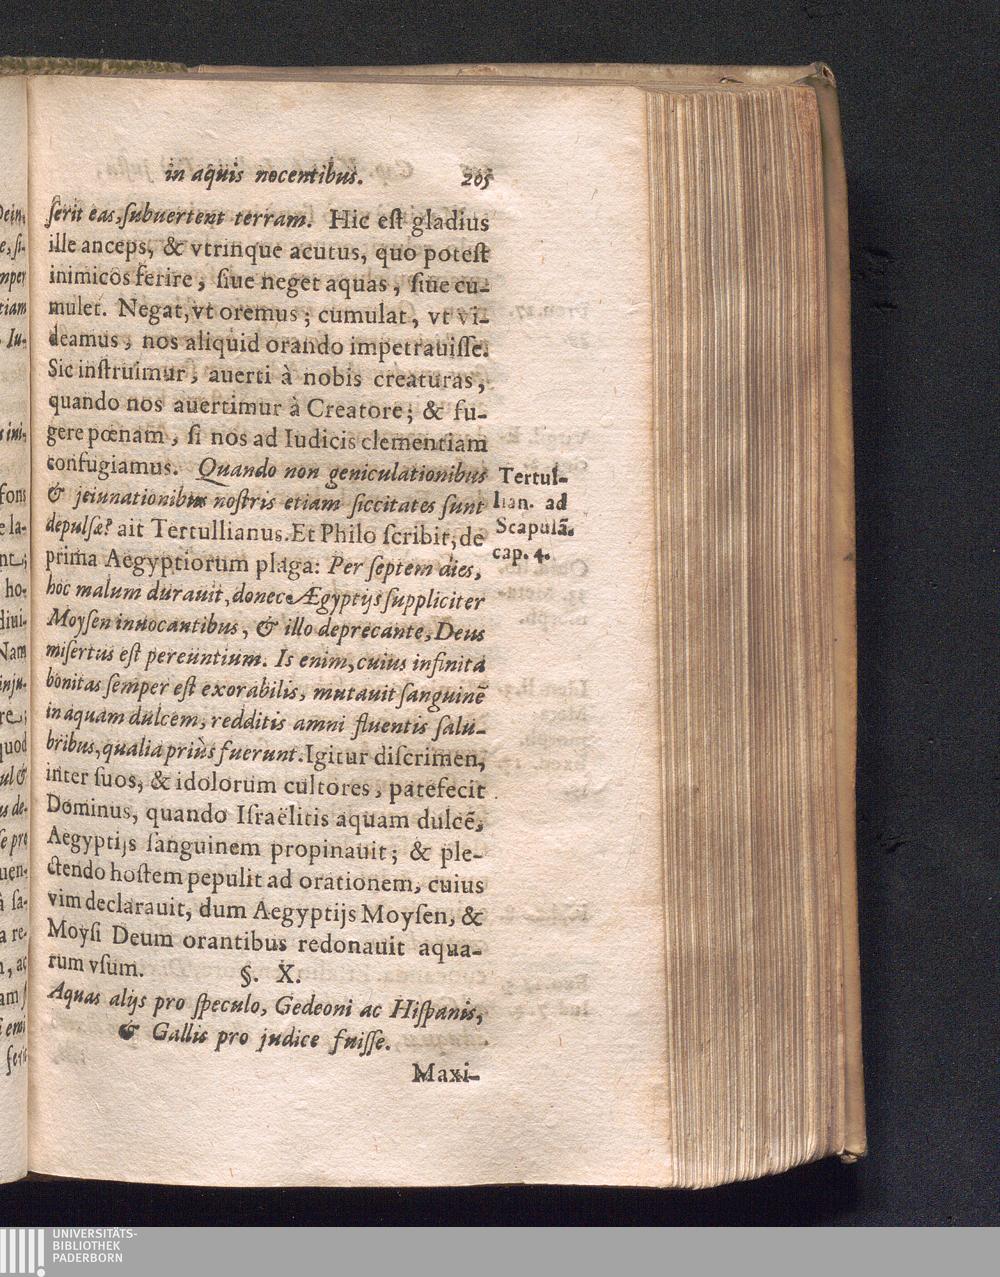 in aquis nocentibus. 205
ſerit eas, ſubuertent terram. Hic eſt gladius
ille anceps, & vtrinque acutus, quo poteſt
inimicos ferire, ſiue neget aquas, ſiue cu-
mulet. Negat, vt oremus; cumulat, vt vi-
deamus, nos aliquid orando impetrauiſſe.
Sic inſtruimur, auerti à nobis creaturas,
quando nos auertimur à Creatore; & fu-
gere pœnam, ſi nos ad Iudicis clementiam
confugiamus. Quando non geniculationibus
& jeiunationibus noſtris etiam ſiccitates ſunt
depulſæ? ait Tertullianus. Et Philo ſcribit, de
prima Aegyptiorum plaga: Per ſeptem dies,
hoc malum durauit, donec Ægyptijs ſuppliciter
Moyſen inuocantibus, & illo deprecante, Deus
miſertus eſt pereuntium. Is enim, cuius infinita
bonitas ſemper eſt exorabilis, mutauit ſanguinē
in aquam dulcem, redditis amni fluentis ſalu-
bribus, qualia priùs fuerunt. Igitur diſcrimen,
inter ſuos, & idolorum cultores, patefecit
Dominus, quando Iſraëlitis aquam dulcē,
Aegyptijs ſanguinem propinauit; & ple-
ctendo hoſtem pepulit ad orationem, cuius
vim declarauit, dum Aegyptijs Moyſen, &
Moyſi Deum orantibus redonauit aqua-
rum vſum.
§. X.
Aquas alijs pro ſpeculo, Gedeoni ac Hiſpanis,
& Gallis pro judice fuiſſe.
Maxi-
Tertul-
lian. ad
Scapulā.
cap. 4.
UNIVERSITÄTS-
BIBLIOTHEK
PADERBORN